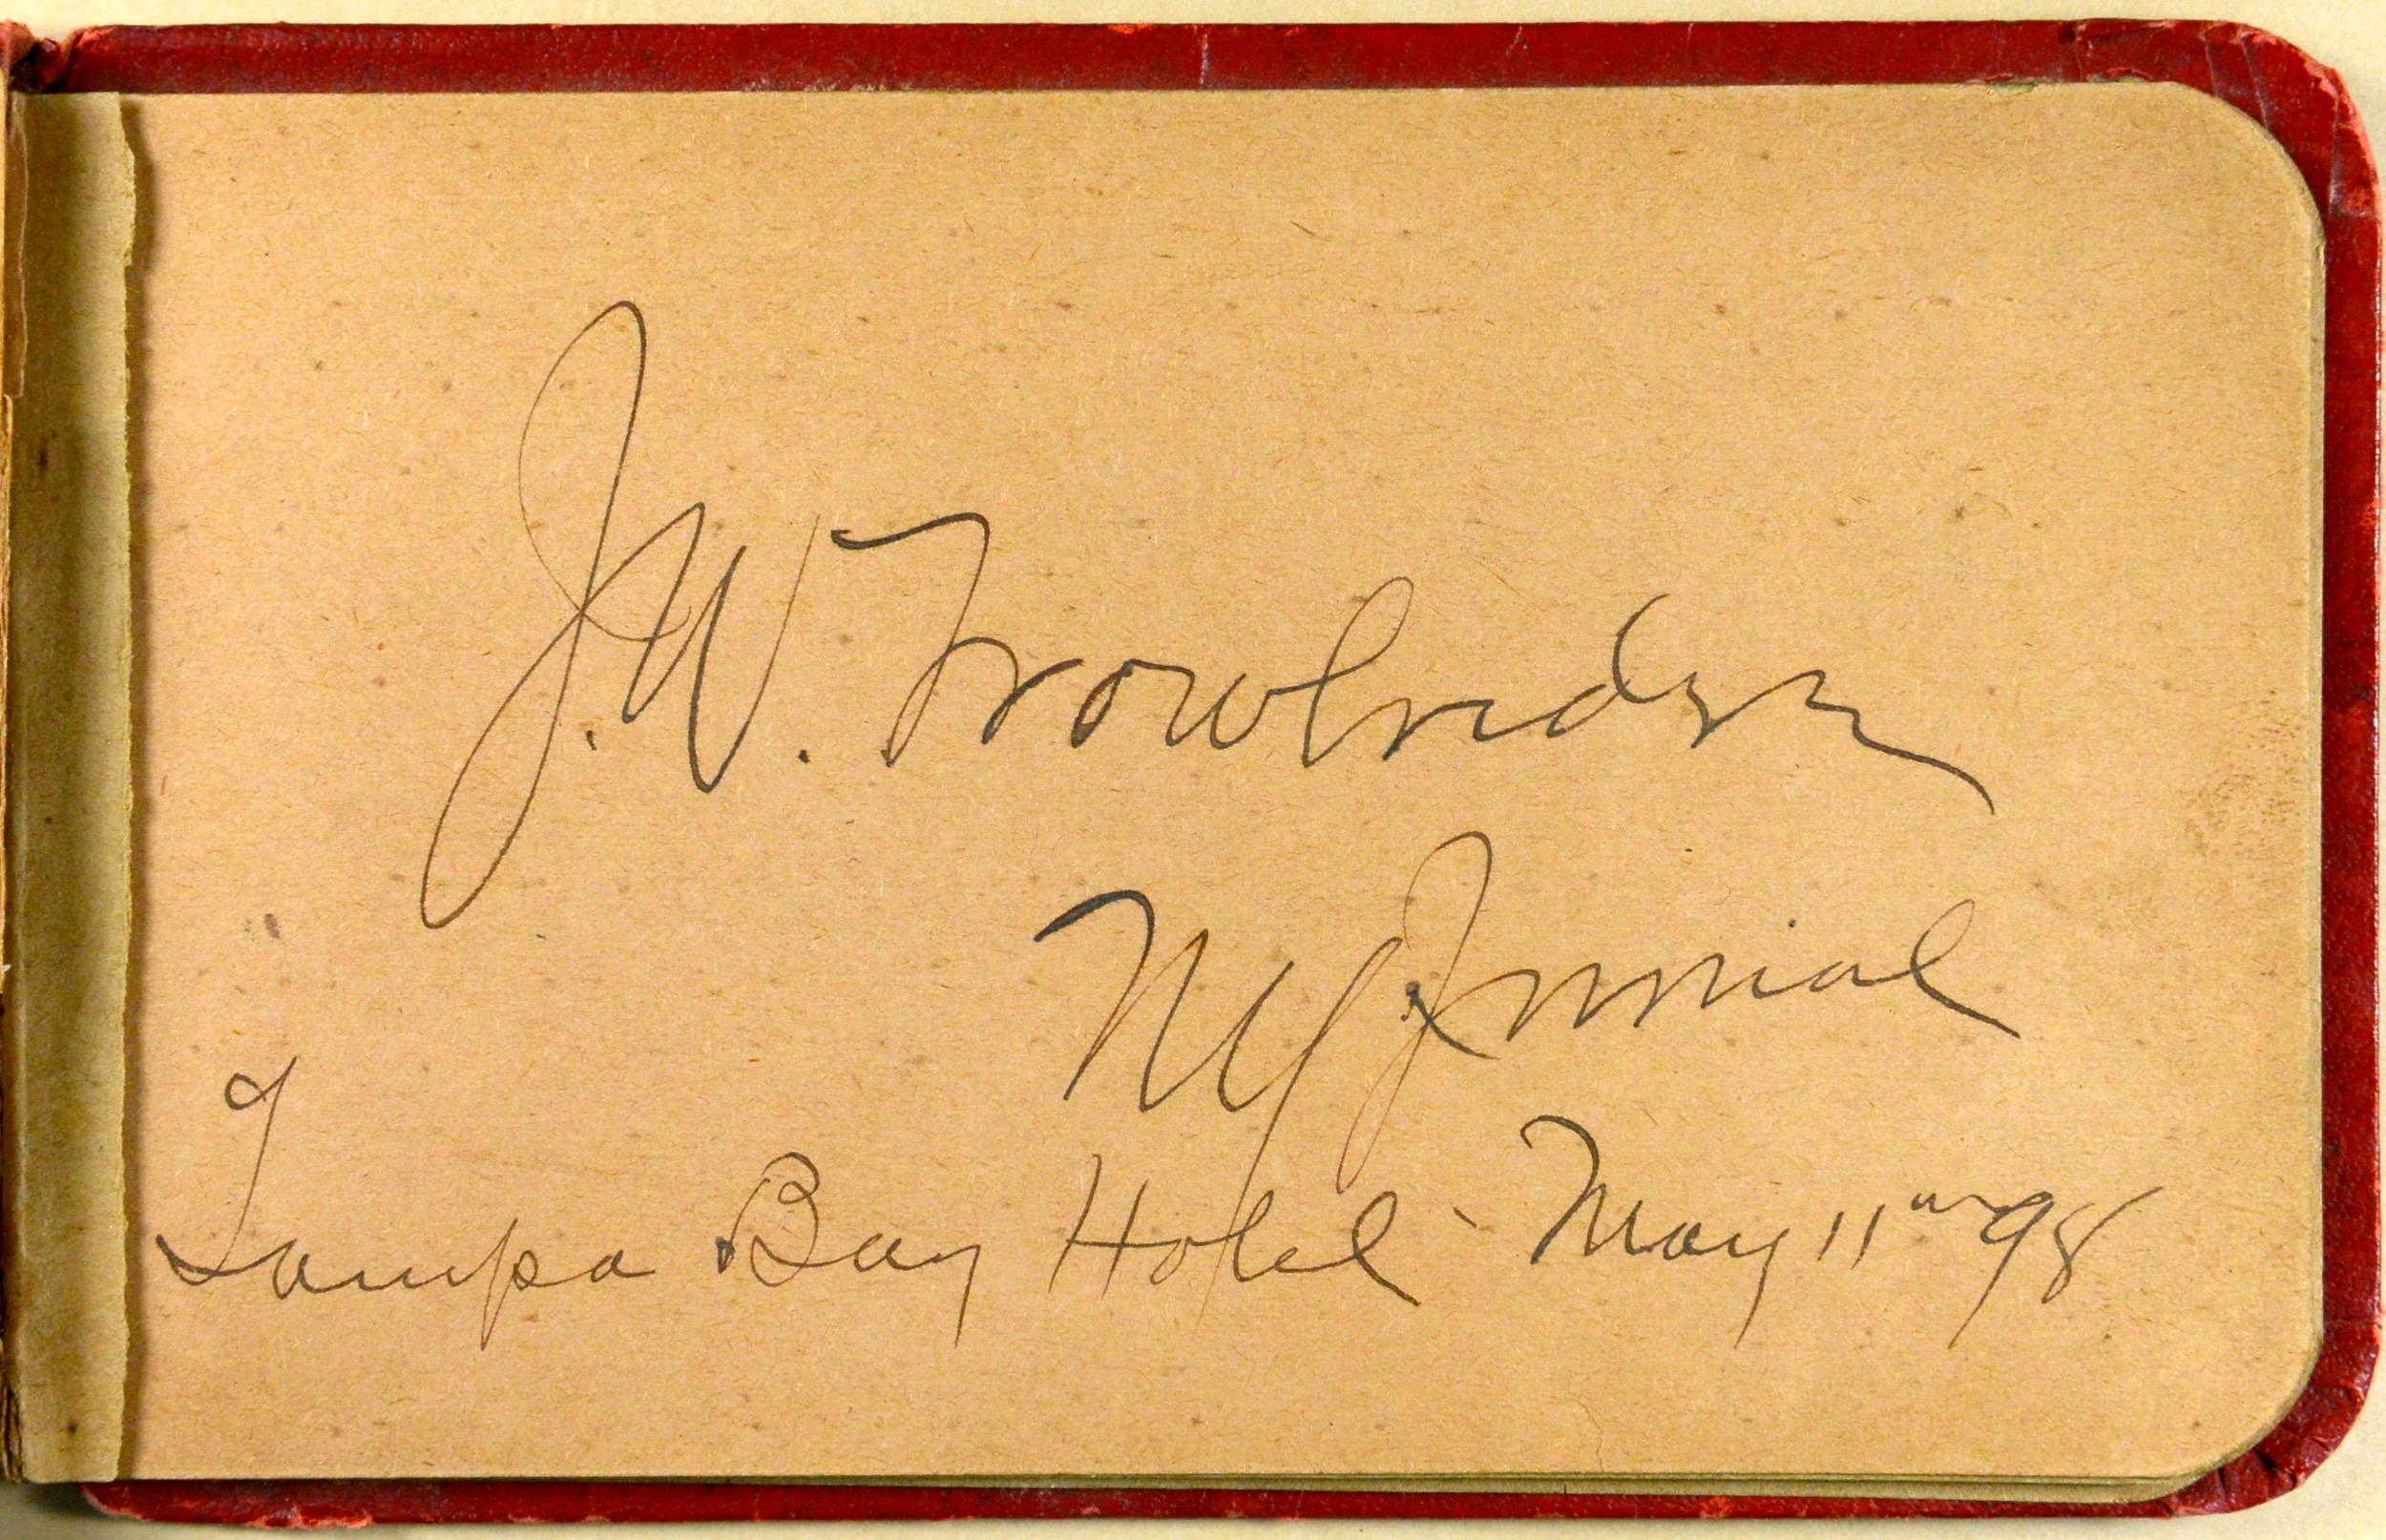 J.W. Trowbridge
NY Journal
Tampa Bay Hotel - May 11th 98